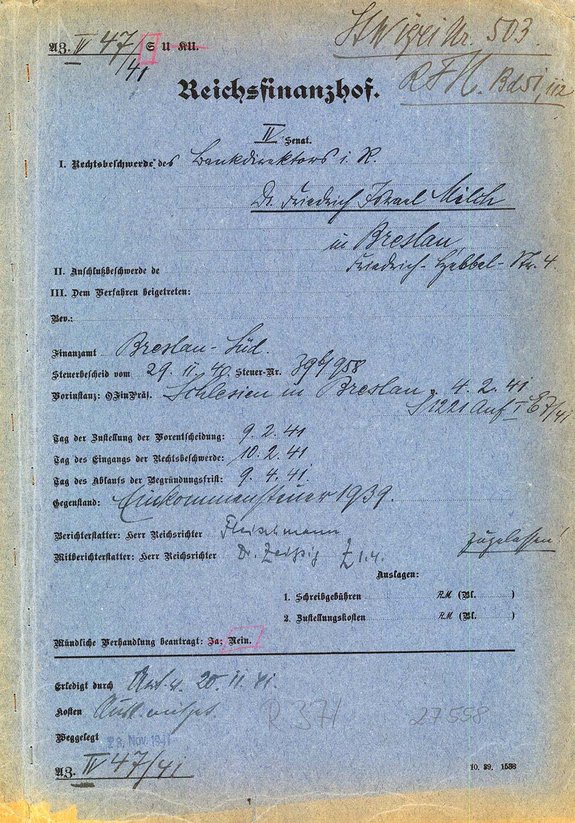 StW 1921 Nr. 503
AZ. IV 47/41 S U KU.
RFH. Bd 51,
Reichsfinanzhof.
IV Senat.
I. Rechtsbeschwerde des Bankdirektors i. R.
Dr. Friedrich Israel Milch
in Breslau
Friedrich-Hebbel-Str. 4.
II. Anschlußbeschwerde de
III. Dem Verfahren beigetreten:
Bev.:
Finanzamt Breslau-Süd.
Steuerbescheid vom 29. 11. 40. Steuer-Nr. 396/958
Vorinstanz: OFinPräs. Schlesien in Breslau v. 4. 2. 41.
S 1221 Auf I E 7/41
Tag der Zustellung der Vorentscheidung: 9. 2. 41
Tag des Eingangs der Rechtsbeschwerde: 10. 2. 41
Tag des Ablaufs der Begründungsfrist: 9. 4. 41.
Gegenstand: Einkommensteuer 1939.
Berichterstatter: Herr Reichsrichter Fleischmann
Mitberichterstatter: Herr Reichsrichter Dr. 1.4.
zugelassen!
Auslagen:
1. Schreibgebühren RM (Bl. )
2. Zustellungskosten RM (Bl. )
Mündliche Verhandlung beantragt: Ja: Nein.
Erledigt durch 20. 11. 41.
Kosten
R 371 27558
Weggelegt 29. Nov. 1941
AZ. IV 47/41
10. 39. 1538